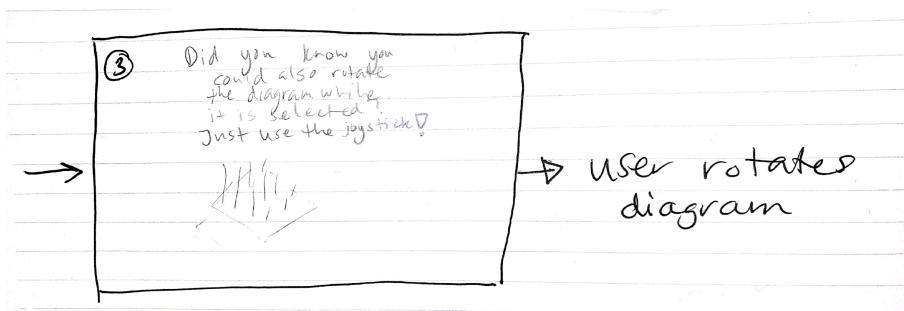 ③
Did you know you
could also rotate
the diagram while
it is selected?
Just use the joystick!
user rotates
diagram